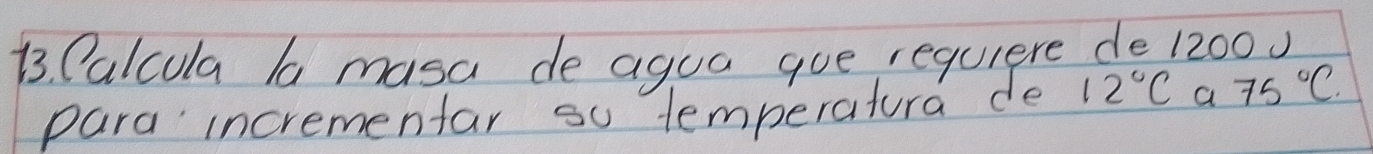 13. Calcula la masa de agua que requiere de 1200 J
para incrementar su temperatura de 12°C a 75°C.